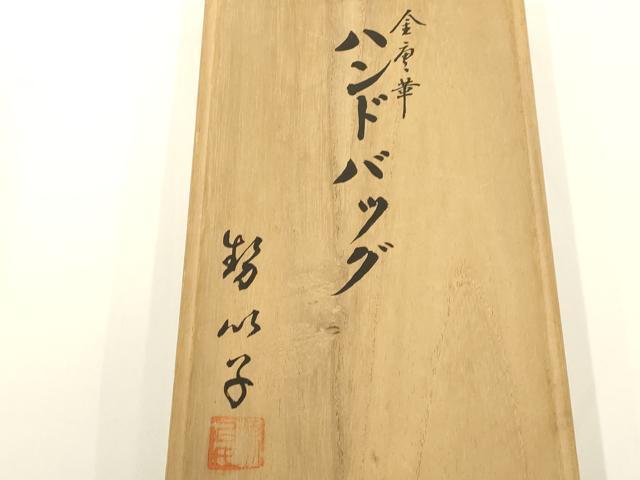 金唐華
ハンドバッグ
勢以子